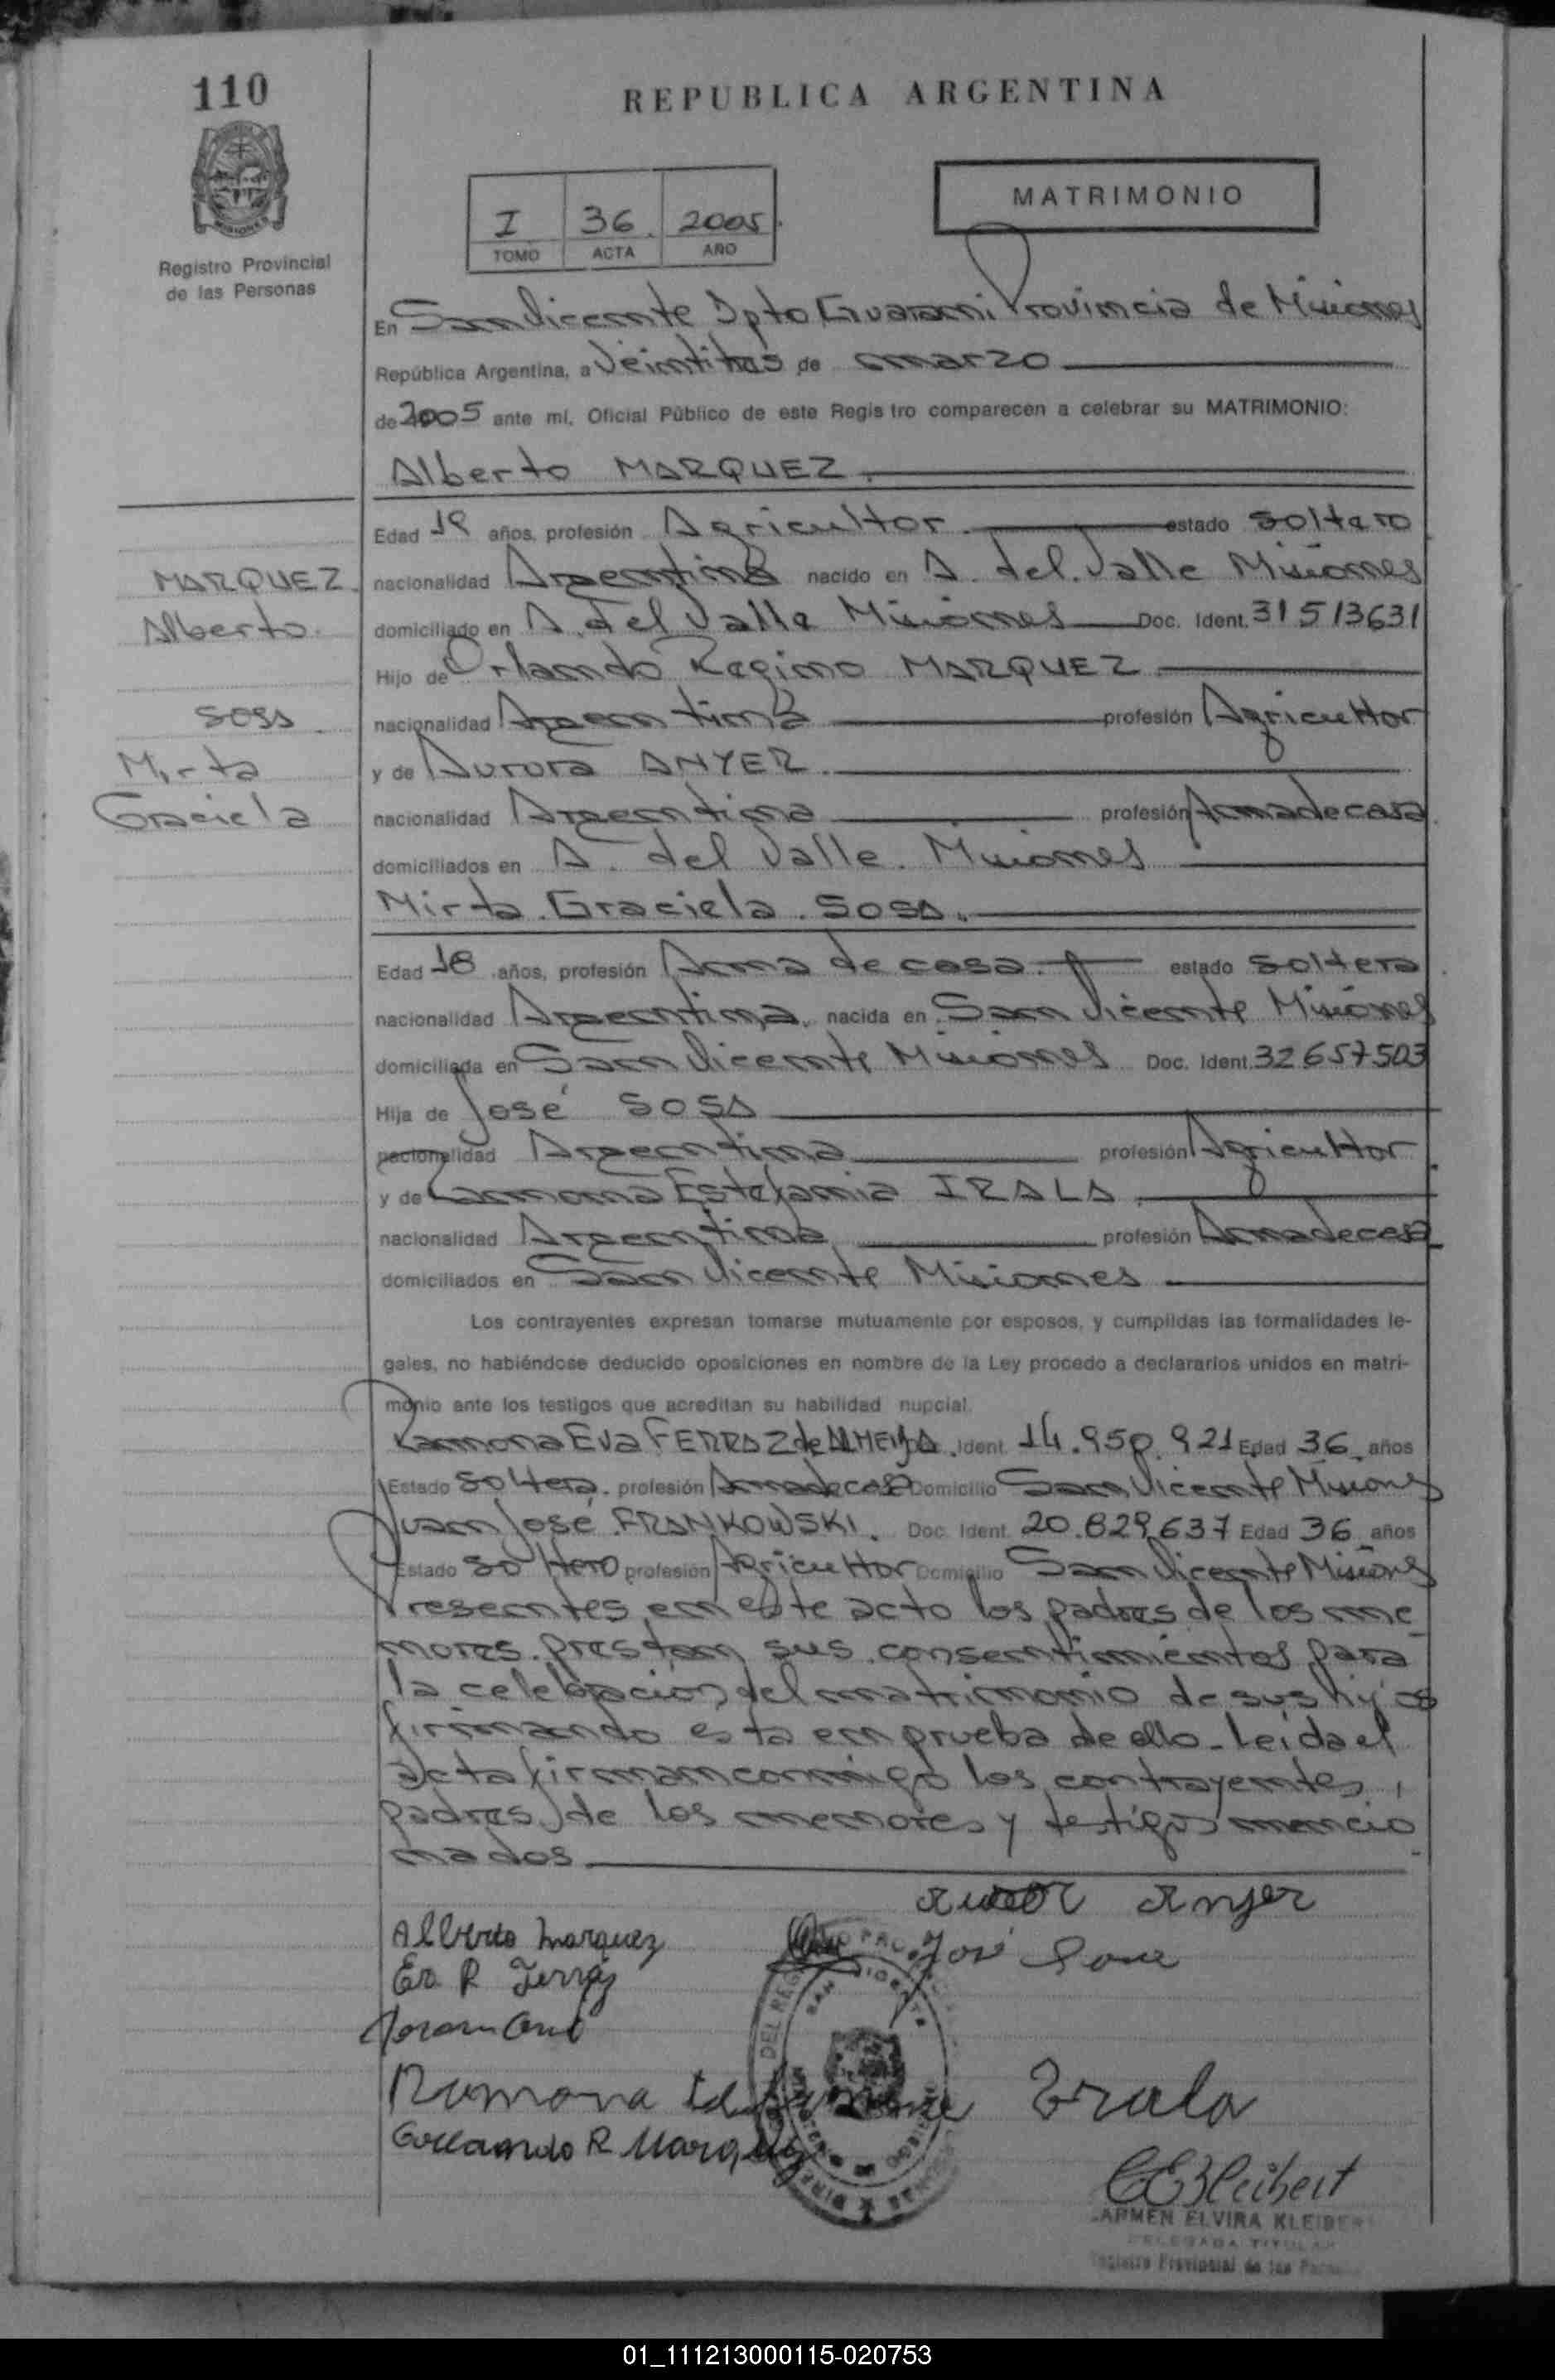 110
REPUBLICA ARGENTINA
MATRIMONIO
I 36 2005
TOMO ACTA AÑO
Registro Provincial
de las Personas
En San Vicente Dpto Guarani Provincia de Misiones
República Argentina, a veintitres de marzo
de 2005 ante mí, Oficial Público de este Registro comparecen a celebrar su MATRIMONIO:
Alberto MARQUEZ.
Edad 19 años, profesión Agricultor estado soltero
MARQUEZ
Alberto
nacionalidad Argentina nacido en A. del Valle Misiones
domiciliado en A. del Valle Misiones Doc. Ident. 31513631
Hijo de Orlando Regino MARQUEZ
SOSA
Mirta
Graciela
nacionalidad Argentina profesión Agricultor
y de Aurora ANYER.
nacionalidad Argentina profesión Ama de casa
domiciliados en A. del Valle. Misiones
Mirta Graciela SOSA.
Edad 18 años, profesión Ama de casa. estado soltera
nacionalidad Argentina, nacida en San Vicente Misiones
domiciliada en San Vicente Misiones Doc. Ident. 32657503
Hija de José SOSA
nacionalidad Argentina profesión Agricultor
y de Ramona Estefania IRALA
nacionalidad Argentina profesión Ama de casa
domiciliados en San Vicente Misiones
Los contrayentes expresan tomarse mutuamente por esposos, y cumplidas las formalidades le-
gales, no habiéndose deducido oposiciones en nombre de la Ley procedo a declararlos unidos en matri-
monio ante los testigos que acreditan su habilidad nupcial.
Ramona Eva FERRAZ de ALMEIDA. Ident. 14.950.921 Edad 36 años
Estado soltera. profesión Ama de casa Domicilio San Vicente Misiones
Juan José FRANKOWSKI. Doc. Ident. 20.829.637 Edad 36 años
Estado soltero profesión Agricultor Domicilio San Vicente Misiones
Presentes en este acto los padres de los me
nores prestan sus consentimientos para
la celebracion del matrimonio de sus hijos
firmando esta en prueba de ello. Leida el
acta firman conmigo los contrayentes,
padres de los menores y testigos mencio
nados.
Anyer
Alberto Marquez
José
Ramona Irala
R Marquez
DEL REG PRO
SAN VICENTE
CEKleibert
CARMEN ELVIRA KLEIBERT
DELEGADA TITULAR
Registro Provincial de las
01_111213000115-020753